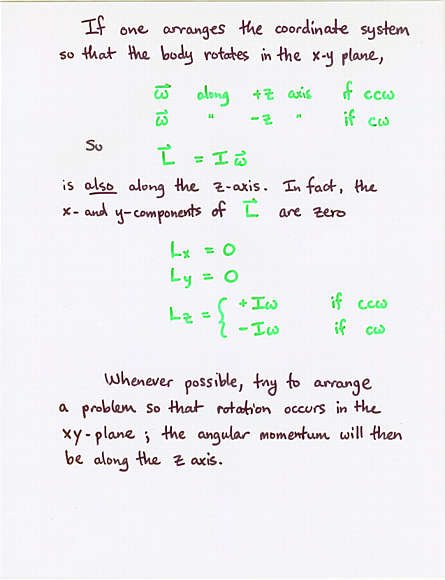 If one arranges the coordinate system
so that the body rotates in the x-y plane,
ω⃗ along +z axis if ccw
ω⃗ " -z " if cw
So
L⃗ = I ω⃗
is also along the z-axis. In fact, the
x- and y-components of L⃗ are zero
Lx = 0
Ly = 0
Lz = { + Iω if ccw
- Iω if cw
Whenever possible, try to arrange
a problem so that rotation occurs in the
xy-plane ; the angular momentum will then
be along the z axis.